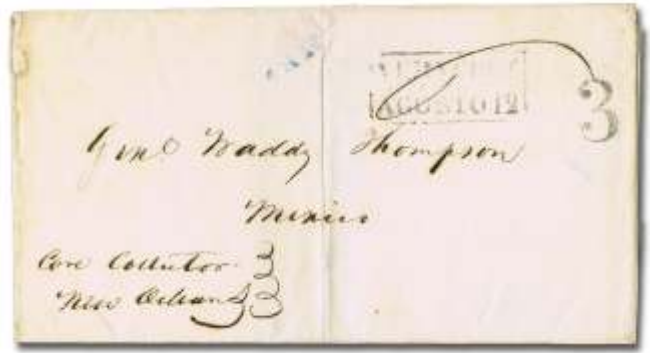 AGOSTO 12
3
Genl Waddy Thompson
Mexico
Care Collector
New Orleans